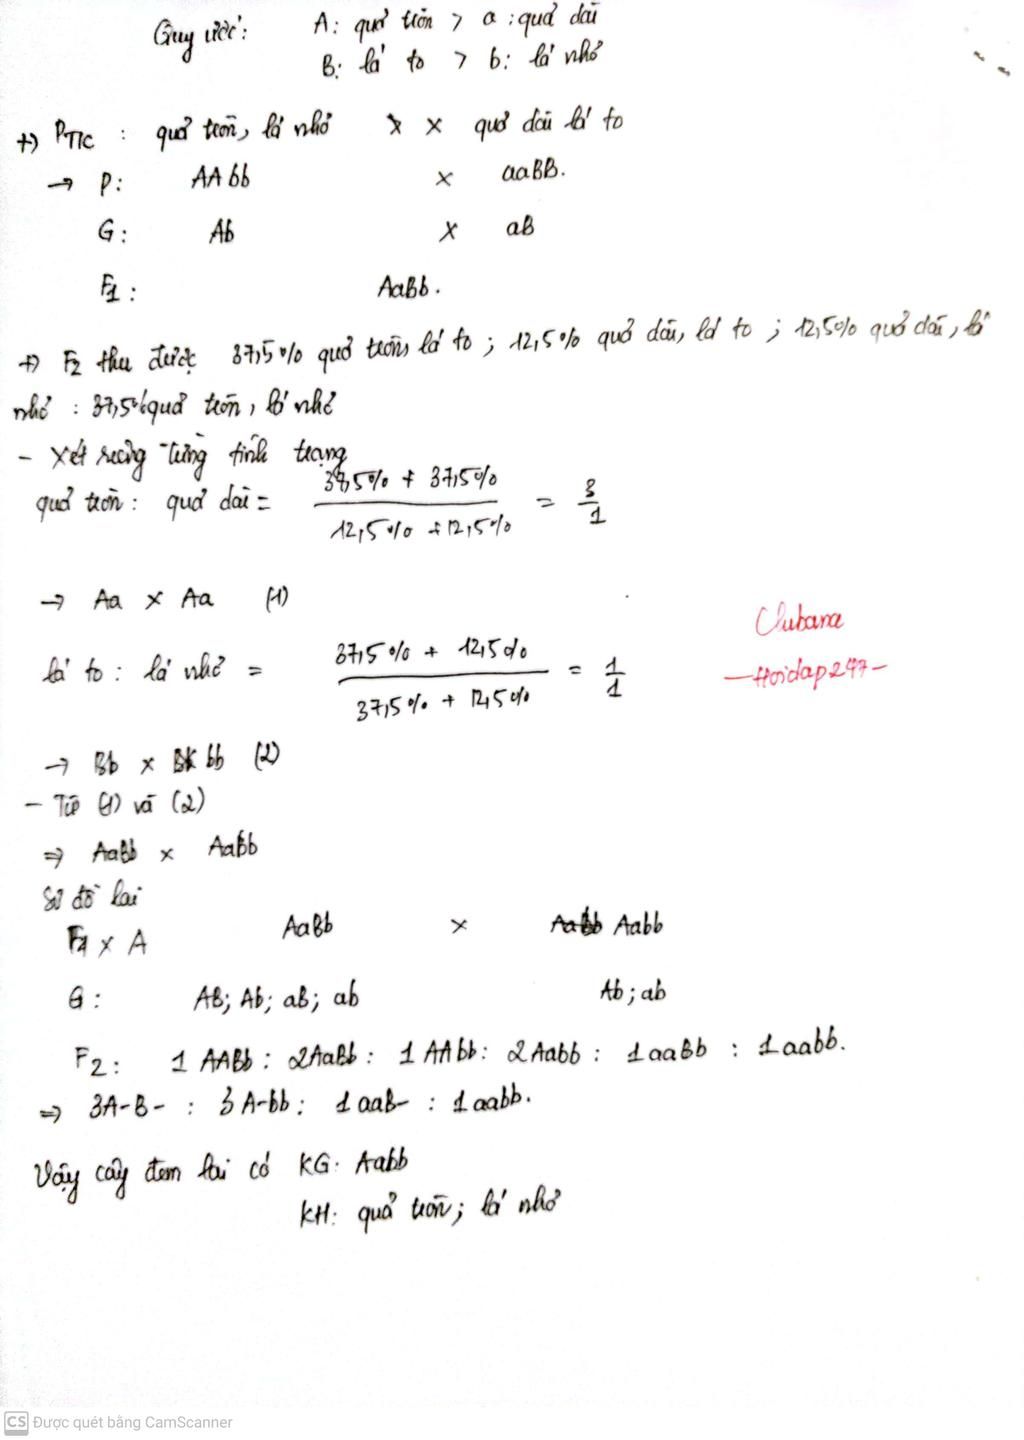 Quy ước: A: quả tròn > a: quả dài
B: lá to > b: lá nhỏ
+) PT/C : quả tròn, lá nhỏ x quả dài lá to
→ P: AAbb x aaBB.
G: Ab x aB
F1: AaBb.
+) F2 thu được 37,5% quả tròn, lá to ; 12,5% quả dài, lá to ; 12,5% quả dài, lá
nhỏ : 37,5% quả tròn, lá nhỏ
- Xét riêng từng tính trạng
quả tròn : quả dài = 37,5% + 37,5% / 12,5% + 12,5% = 3/1
→ Aa x Aa (1)
lá to : lá nhỏ = 37,5% + 12,5% / 37,5% + 12,5% = 1/1
Clubana
-Hoidap247-
→ Bb x bb (2)
- Từ (1) và (2)
⇒ AaBb x Aabb
Sơ đồ lai
F1 x A AaBb x Aabb
G: AB; Ab; aB; ab Ab; ab
F2: 1 AABb : 2AaBb : 1 AAbb : 2Aabb : 1aaBb : 1aabb.
⇒ 3A-B- : 3A-bb : 1aaB- : 1aabb.
Vậy cây đem lai có KG: Aabb
KH: quả tròn; lá nhỏ
CS Được quét bằng CamScanner